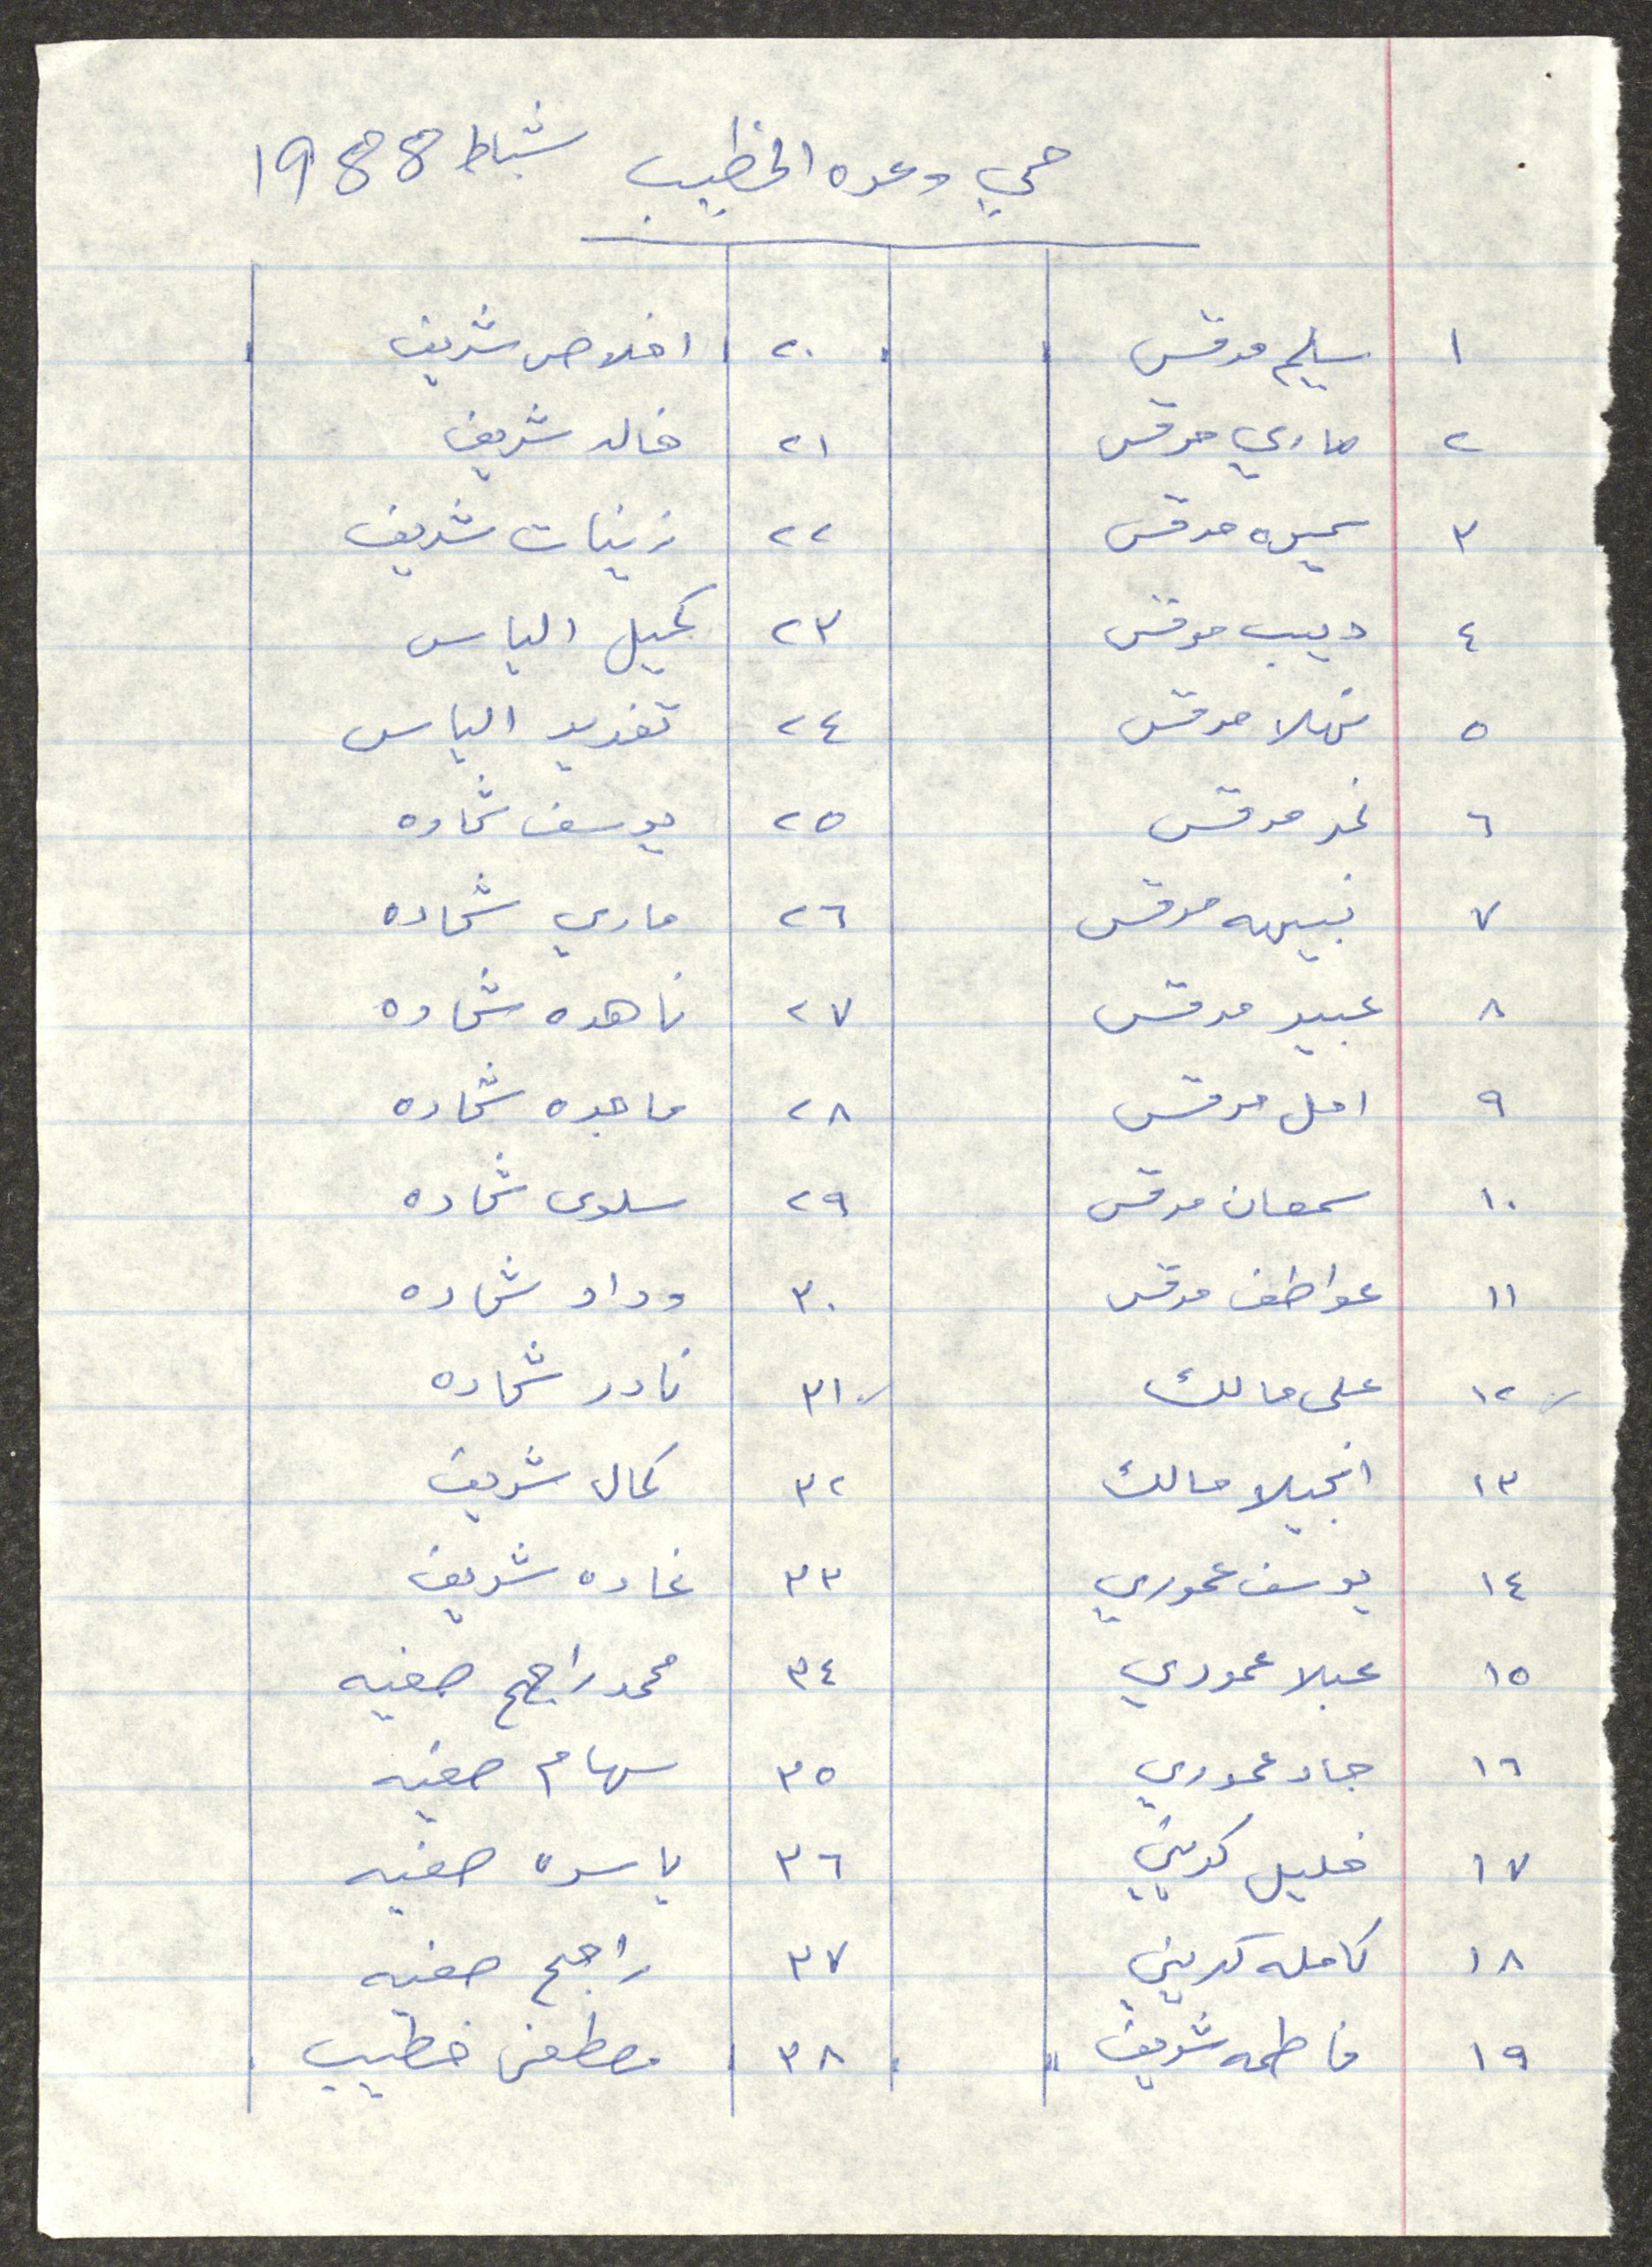 حي وعده الخطيب شباط 1988
١ سليم مرقس
٢ ماري مرقس
٣ سميره مرقس
٤ ديب مرقس
٥ نهلا مرقس
٦ نمر مرقس
٧ نبيهه مرقس
٨ عبير مرقس
٩ امل مرقس
١٠ سمعان مرقس
١١ عواطف مرقس
١٢ علي مالك
١٣ انجيلا مالك
١٤ يوسف عموري
١٥ عبلا عموري
١٦ جاد عموري
١٧ خليل كريني
١٨ كامله كريني
١٩ فاطمه شريف
٢٠ اخلاص شريف
٢١ خالد شريف
٢٢ زينات شريف
٢٣ كميل الياس
٢٤ تغريد الياس
٢٥ يوسف شحاده
٢٦ ماري شحاده
٢٧ ناهده شحاده
٢٨ ماجده شحاده
٢٩ سلوى شحاده
٣٠ وداد شحاده
٣١ نادر شحاده
٣٢ كمال شريف
٣٣ غاده شريف
٣٤ محمد راجح صفيه
٣٥ سهام صفيه
٣٦ ياسره صفيه
٣٧ راجح صفيه
٣٨ مصطفى خطيب